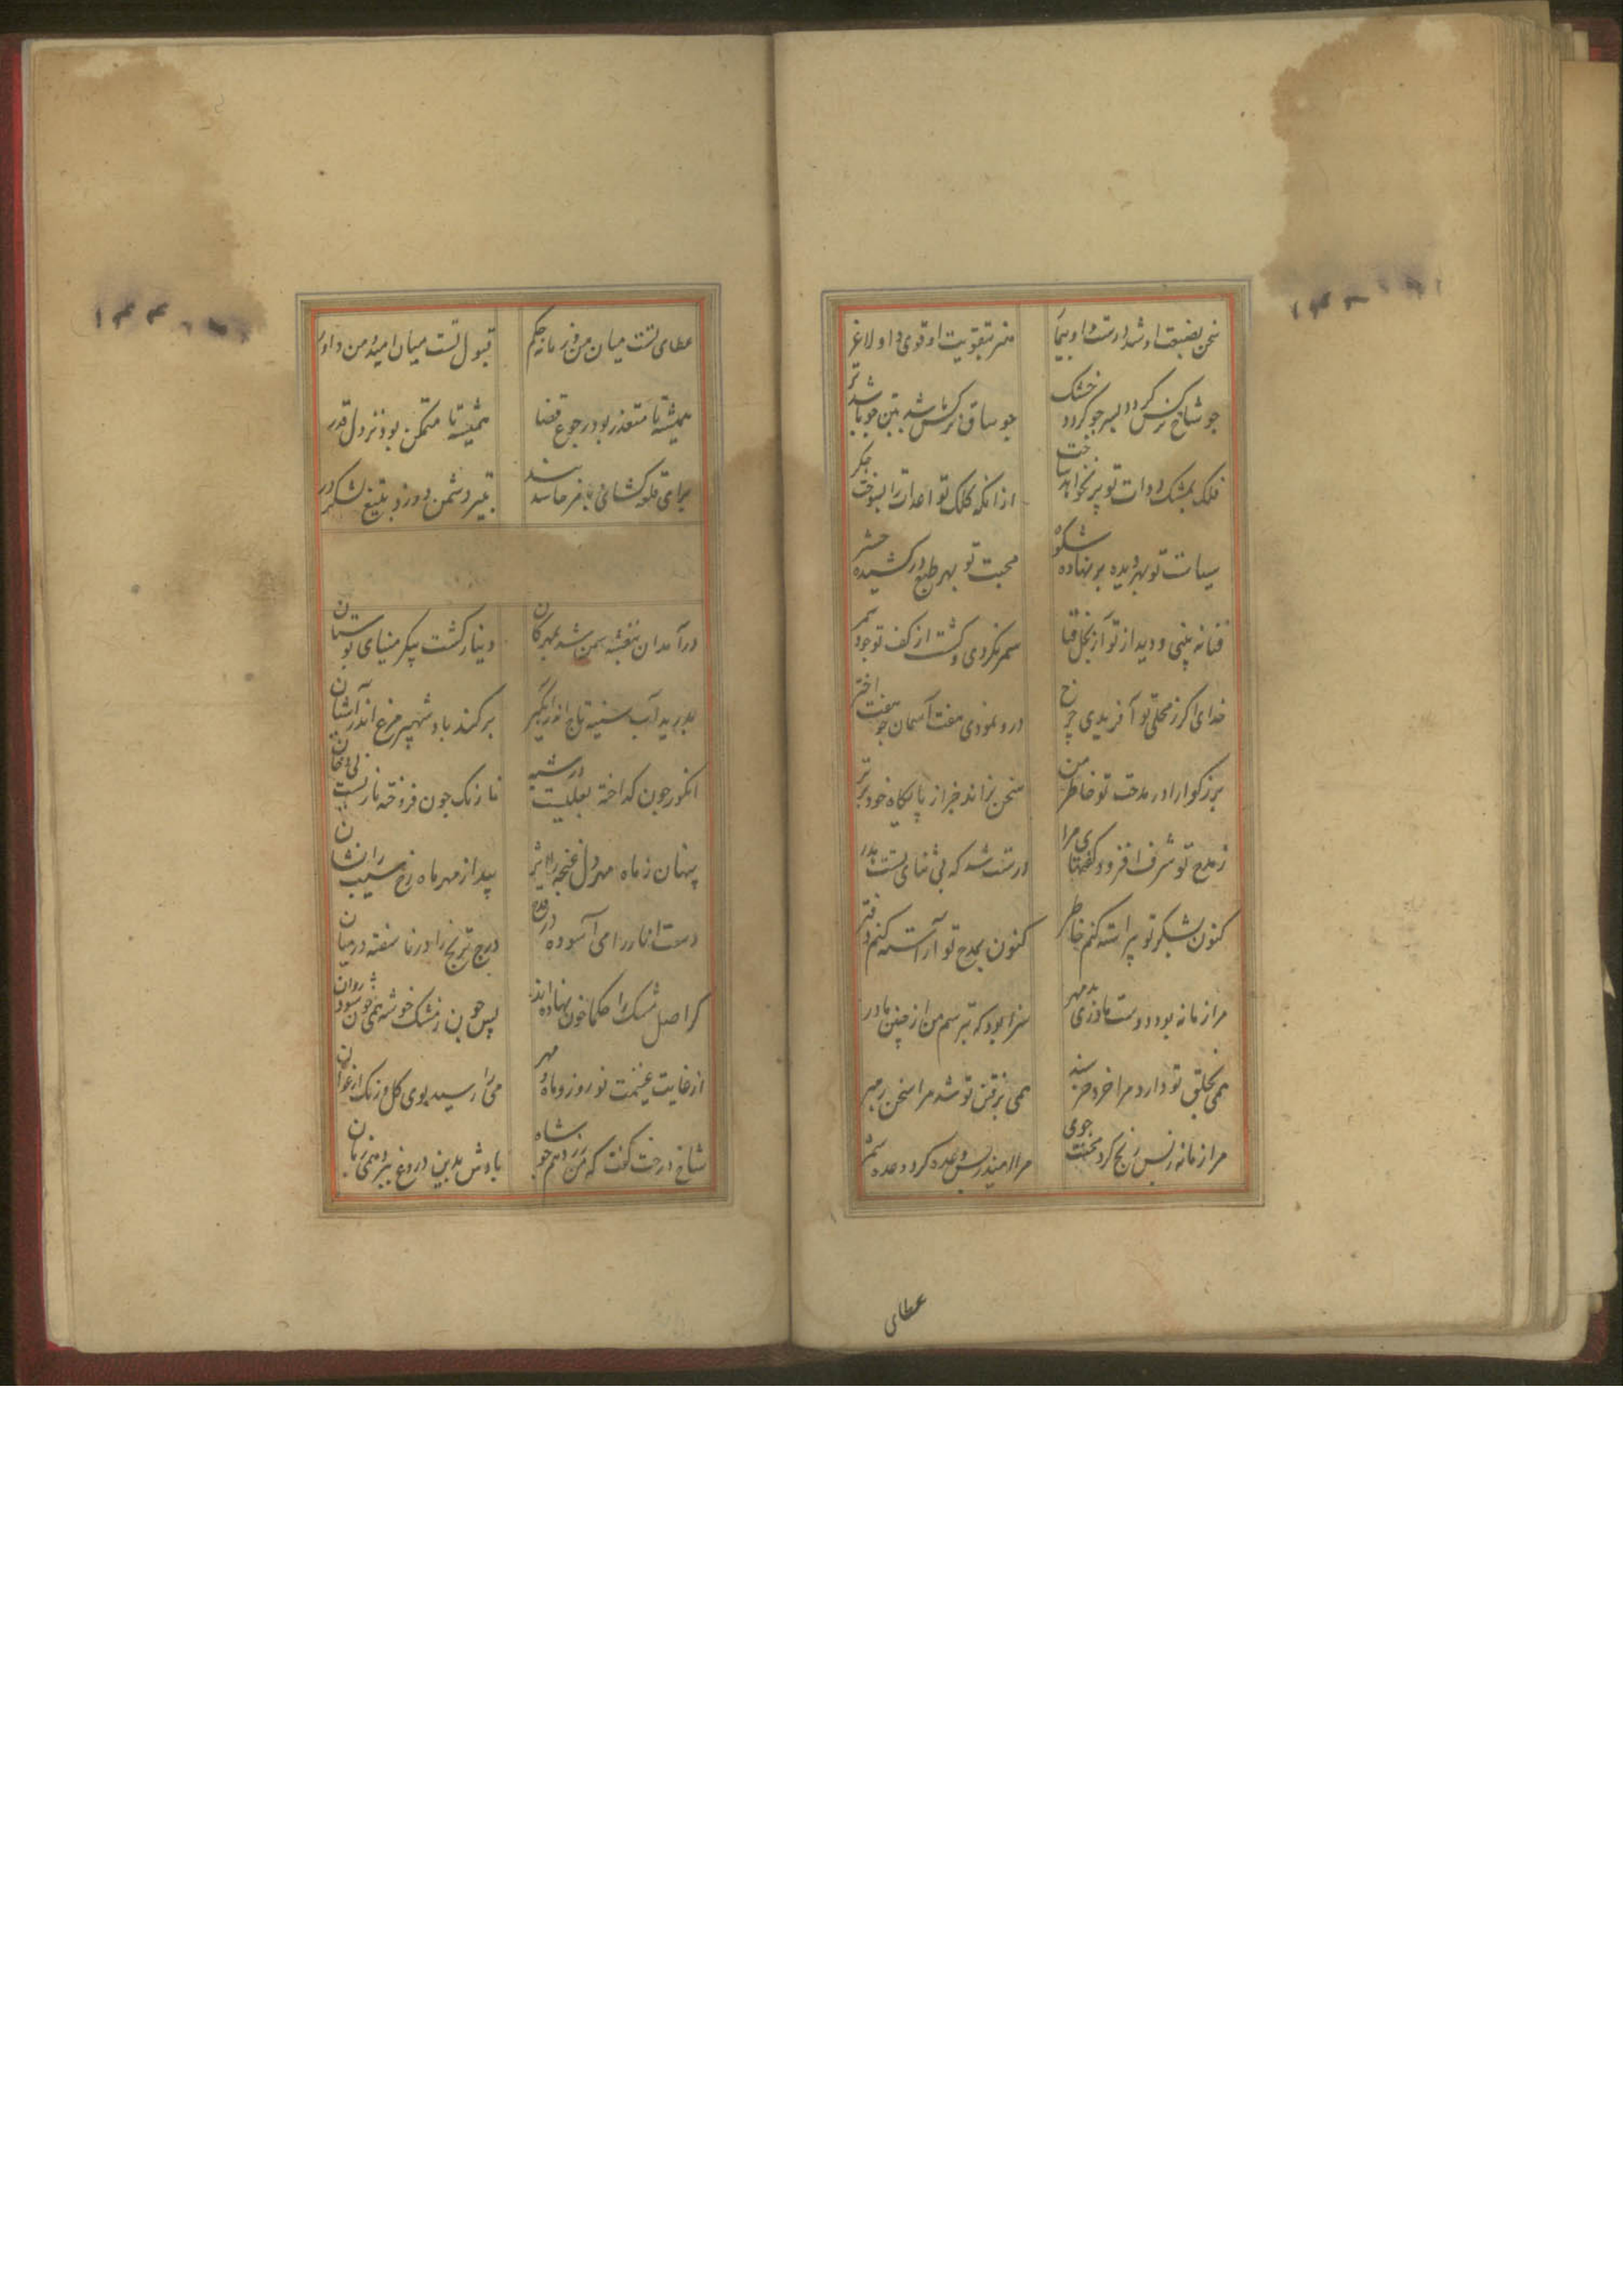 سخن بصنعت او شد درست و او بیمار
هنر بتقویت او قوی و او لاغر
جو شاخ نرکس کردد بسر جو کردد خشک
جو ساق نرکس باشد بتن جو باشد تر
فلک بمشک دوات تو بر نخواهد ساخت
از انکه کلک تو اعدات را بسوخت جکر
سیاست تو بهر دیده بر نهاده شکوه
محبت تو بهر طبع در کشیده حشر
سمر نکردی و کشت از کف تو جود سمر
خدای اکر ز محل تو آفریدی جرخ
درو نمودی هفت آسمان جو هفت اختر
بزرکوارا در مدحت تو خاطر من
سخن نراند جز از پایکاه خود برتر
ز مدح تو شرف افزود کفتهای مرا
درست شد که بی ثنای تست هدر
کنون بشکر تو پیراسته کنم خاطر
کنون بمدح تو آراسته کنم دفتر
مرا زمانه بود دوست مادری بد مهر
سزا بود که بترسم من از جنین مادر
همی بخلق تو دارد مرا خرد خرسند
همی برفتن تو شد مرا سخن رهبر
مرا زمانه ز بس رنج کرد محنت جوی
مرا امید ز بس وعده کرد وعده شمر
عطای
عطای تست میان من و زمانه حکم
قبول تست میان امید و من داور
همیشه تا متعذر بود رجوع قضا
همیشه تا متمکن بود نزول قدر
برای قلعه کشای و بامر حاسد بند
بتیر دشمن دوز و بتیغ لشکر در
در آمدان بنفشه سمن شد بمهرکان
دینار کشت پیکر مینای بوستان
بدرید آب سینه تاج اندر آبکیر
برکند باد شهپر مرغ اندر آشیان
انکور جون کداخته لعلیست در شبه
نارنک جون فروخته ناریست بی دخان
پنهان ز ماه مهر دل غنجه را اثر
پیدا ز مهر ماه رخ سیب را نشان
دست انار را می آسوده در قدح
درج ترنج را در ناسفته در میان
کر اصل مشک را حکما خون نهاده اند
پس جون ز مشک خوشه همی خون شود روان
از غایت غنیمت نوروز و ماه مهر
می را رسید بوی کل و رنک ارغوان
شاخ درخت کفت که من زر دهم جو شاه
بادش بدین دروغ ببرد همی زبان